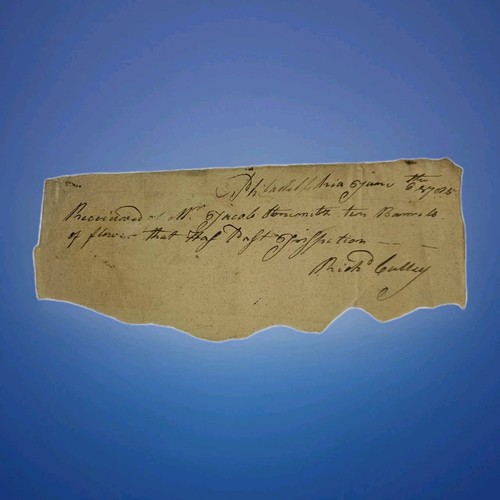 Philadelphia June 6th 1785
Received of Mr Jacob Hensmith ten Barrels
of flower that Has Past Inspection
Richd Culley